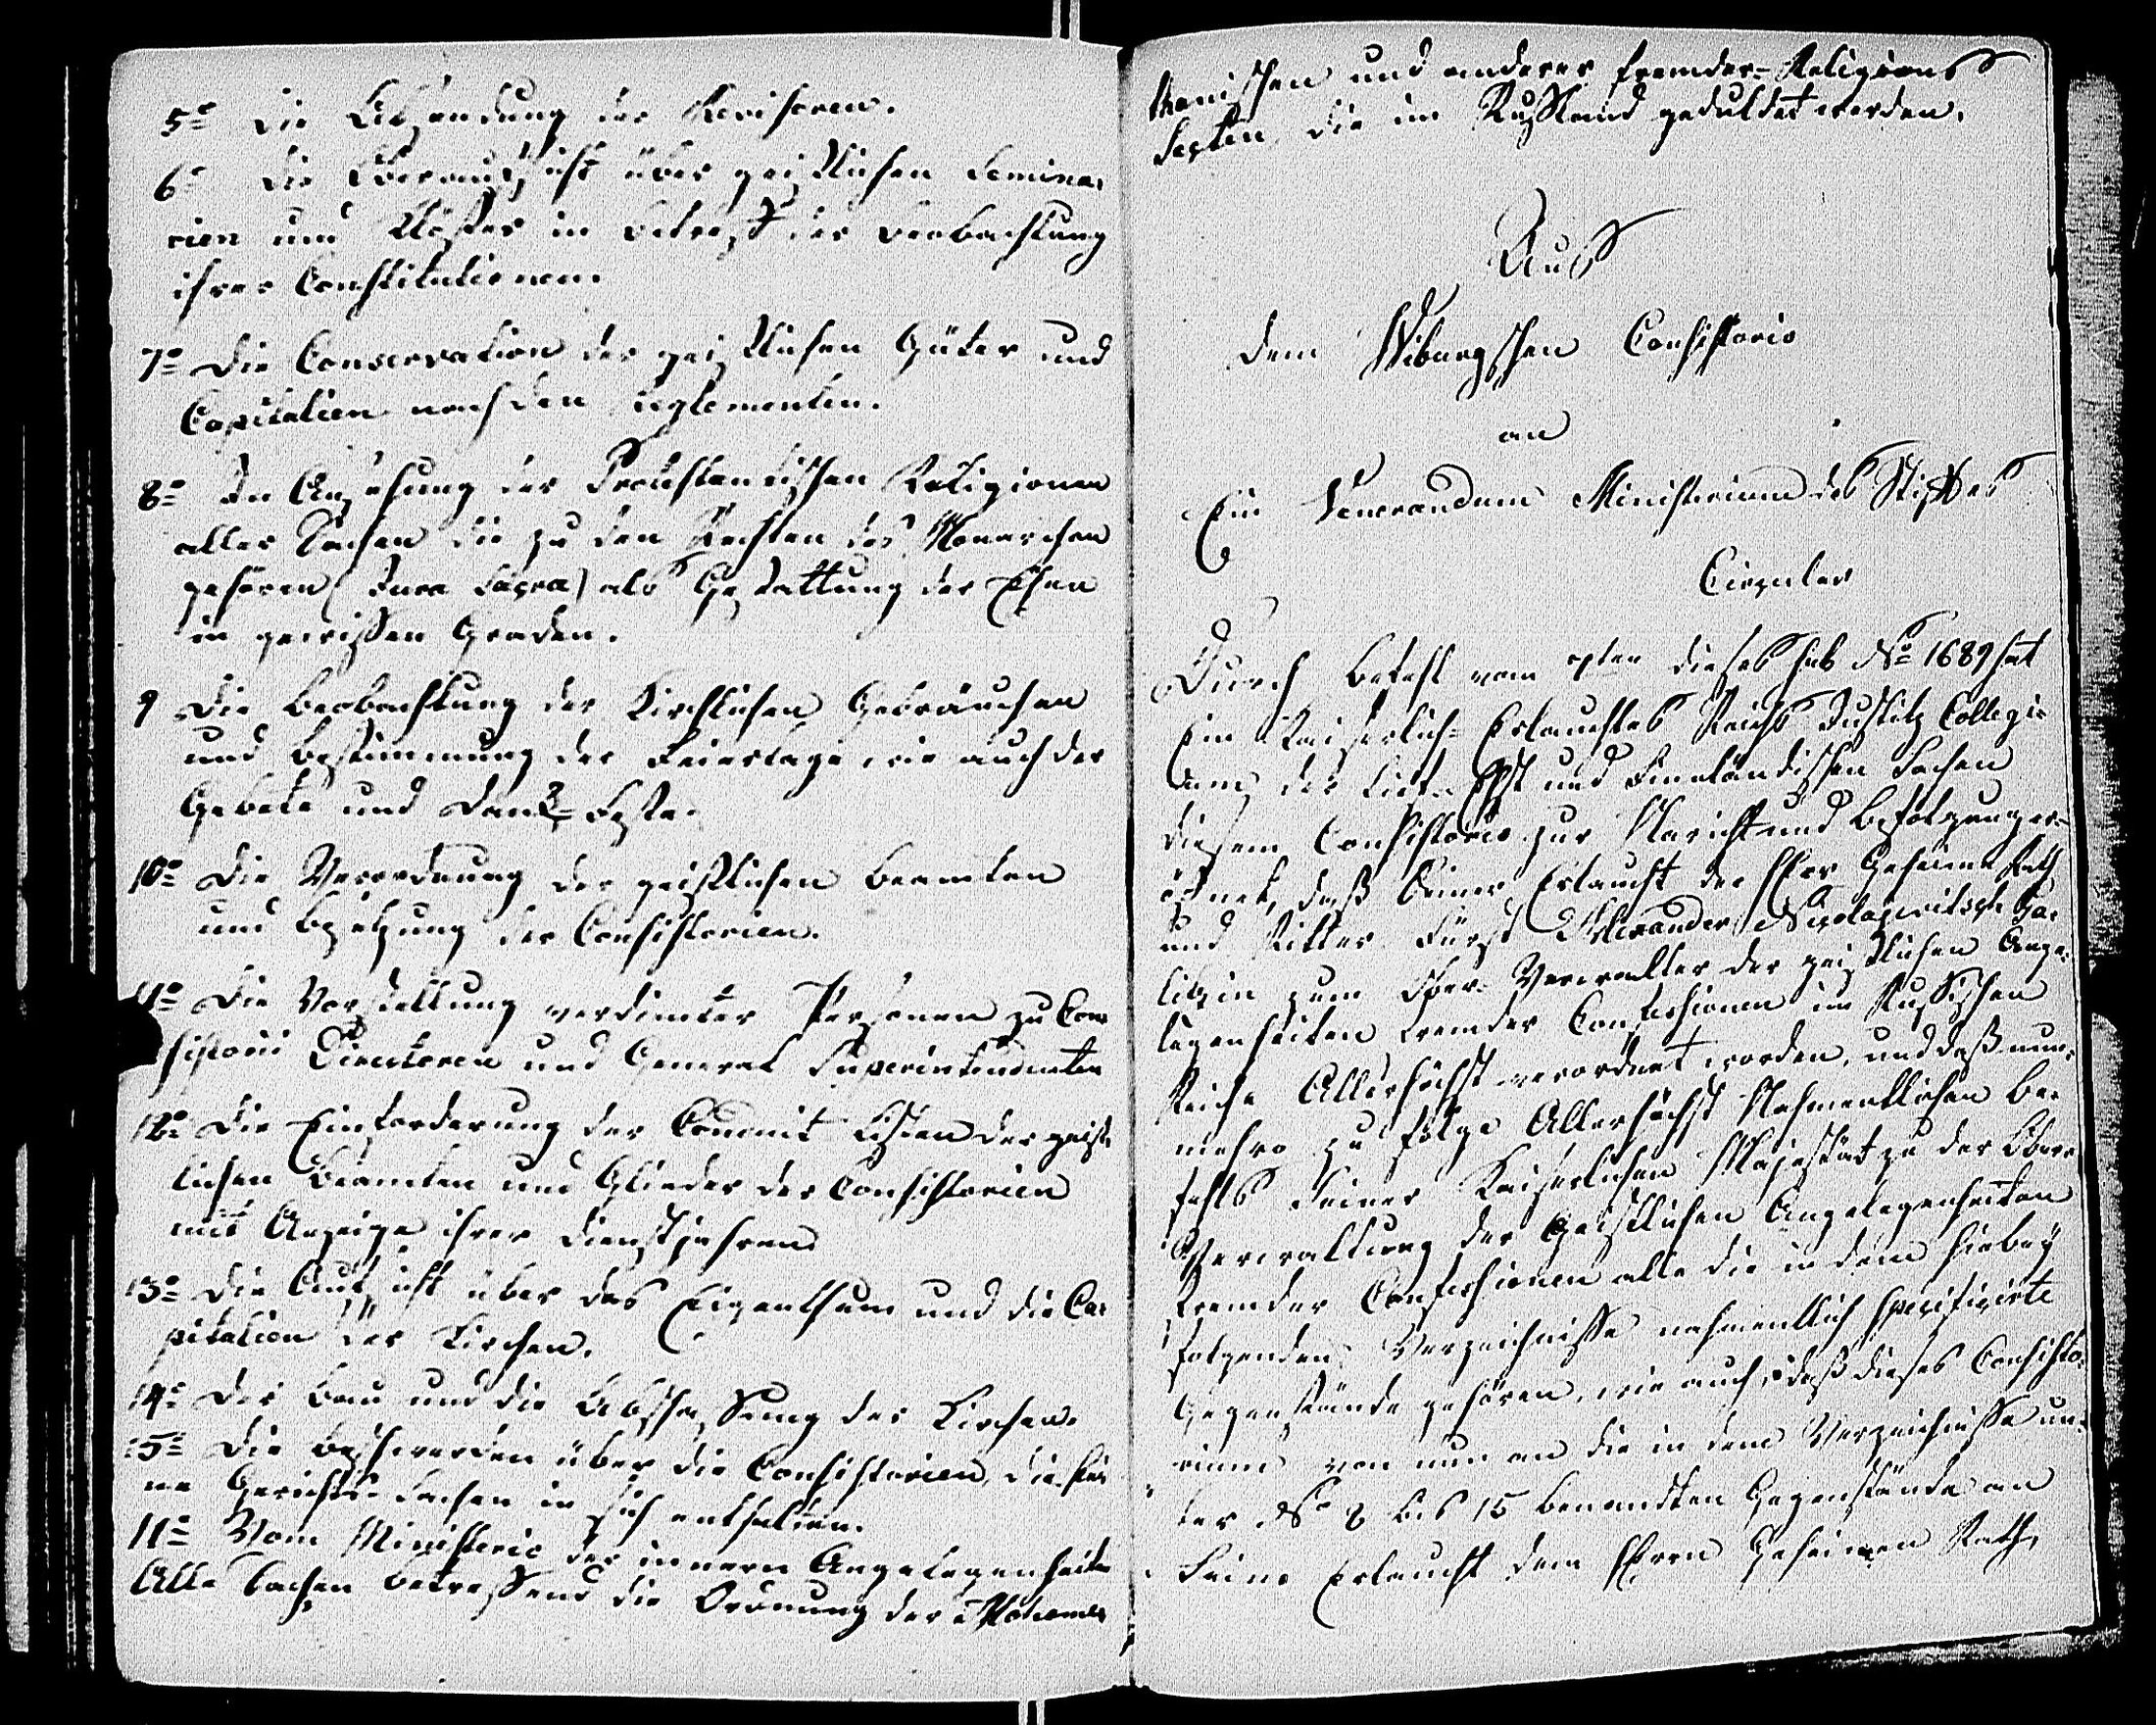 5º Die Absendung der Revisoren.
6º Die Oberaufsicht über geistlichen Semina,
rien und Klöster in Betreff der Beobachtung
ihrer Constitutionen.
7º Die Conservation der geistlichen Güter und
Capitalien nach den Reglementen.
8º In Ansehung der Protestantischen Religionen
aller Sachen die zu den Rechten des Monarchen
gehören (Jura Sacra) als Gestattung der Ehen
in gewissen Graden.
9 Die Beobachtung der Kirchlichen Gebräuchen
und Bestimmung der Feiertage wie auch der
Gebete und Dank-Feste.
10º Die Verordnung der geistlichen Beamten
und Besetzung der Consistorien.
11º Die Vorstellung verdienter Personen zu Con,
sistorii Directoren und General Superintendenten
12º Die Einforderung der Listen der geist,
lichen Beamten und Glieder der Consistorien
mit Anzeige ihrer Dienstjahren
13º Die Aufsicht über das Eigenthum und die Ca,
pitalien der Kirchen.
14º Der Bau und die Abschaffung der Kirchen.
15º Die Beschwerden über die Consistorien, die kei,
ne Gerichts-Sachen in sich enthalten.
11º Vom Ministerio der innern Angelegenheiten
Alle Sachen betreffend die Ordnung der Mahome,
thanischen und anderer fremder-Religions
Secten die im Rußland geduldet werden.
Aus
dem Wiburgschen Consistorio
an
Ein Venerandum Ministerium des Stiftes
Circular
Durch Befehl vom dieses sub No 1689 hat
Ein Kaiserlich-Erlauchtes Reichs Justitz Collegi,
um der Lief- Ehst und Finnländischen Sachen
diesem Consistorio zur Nachricht und Befolgung er-
öfnet, daß Seiner Erlaucht der Herr Geheime Rath
und Ritter Fürst Alexander Nicolajewitsch Ga,
litzin zum Ober-Verwalter der geistlichen Ange,
legenheiten fremder Confessionen im Russischen
Reiche Allerhöchst verordnet worden, und daß nun,
mehro zu folge Allerhöchst Nahmentlichen Be,
fehls Seiner Kaiserlichen Majestät zu der Ober,
Verwaltung der Geistlichen Angelegenheiten
fremder Confessionen alle die in dem hiebey
folgenden Verzeichnisse nahmentlich specificirte
Gegenstände gehören, wie auch, daß dieses Consisto,
rium von nun an die in dem Verzeichnisse un,
ter No 8 bis 15 benandten Gegenstände an
Seine Erlaucht dem Herrn Geheimen Rath